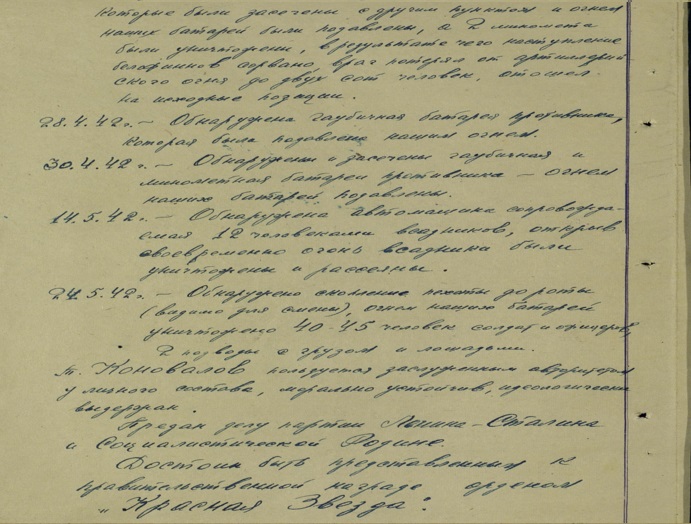 которые были засечены с другим пунктом и огнем
наших батарей были подавлены, а 2 миномета
были уничтожены, в результате чего наступление
белофиннов сорвано, враг потерял от артиллерий
ского огня до двух сот человек, отошел
на исходные позиции.
28.4.42г. – Обнаружена гаубичная батарея противника,
которая была подавлена нашим огнем.
30.4.42г. – Обнаружены и засечены гаубичная и
минометная батареи противника – огнем
наших батарей подавлены.
14.5.42г. – Обнаружена автомашина сопровожда-
емая 12 человеками всадников, открыв
своевременно огонь всадники были
уничтожены и рассеяны.
24.5.42г. – Обнаружено скопление пехоты до роты
(видимо для смены), огнем наших батарей
уничтожено 40-45 человек солдат и офицеров,
2 подводы с грузом и лошадьми.
т. Коновалов пользуется заслуженным авторитетом
у личного состава, морально устойчив, идеологически
выдержан.
Предан делу партии Ленина-Сталина
и Социалистической Родине.
Достоин быть представленным к
правительственной награде орденом
„Красная Звезда".